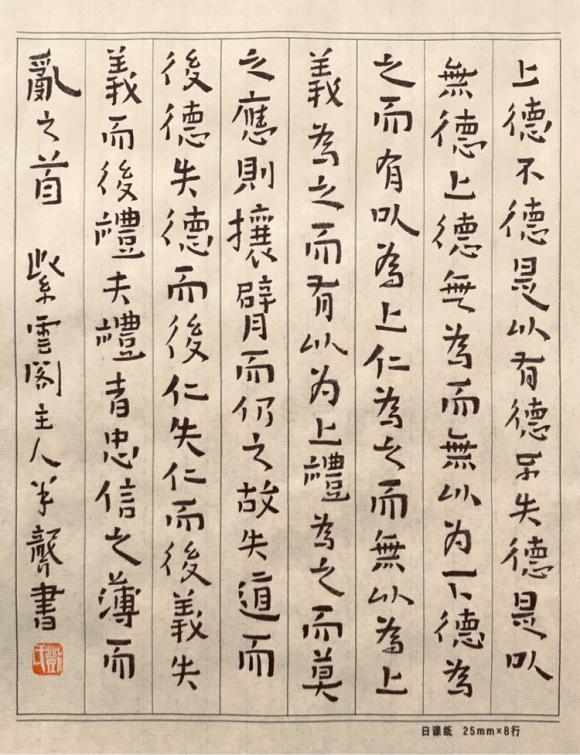 上德不德是以有德下德不失德是以
無德上德無為而無以为下德為
之而有以為上仁為之而無以為上
義為之而有以为上禮為之而莫
之應則攘臂而仍之故失道而
後德失德而後仁失仁而後義失
義而後禮夫禮者忠信之薄而
亂之首 紫雲閣主人半聾書
日课纸 25mm×8行